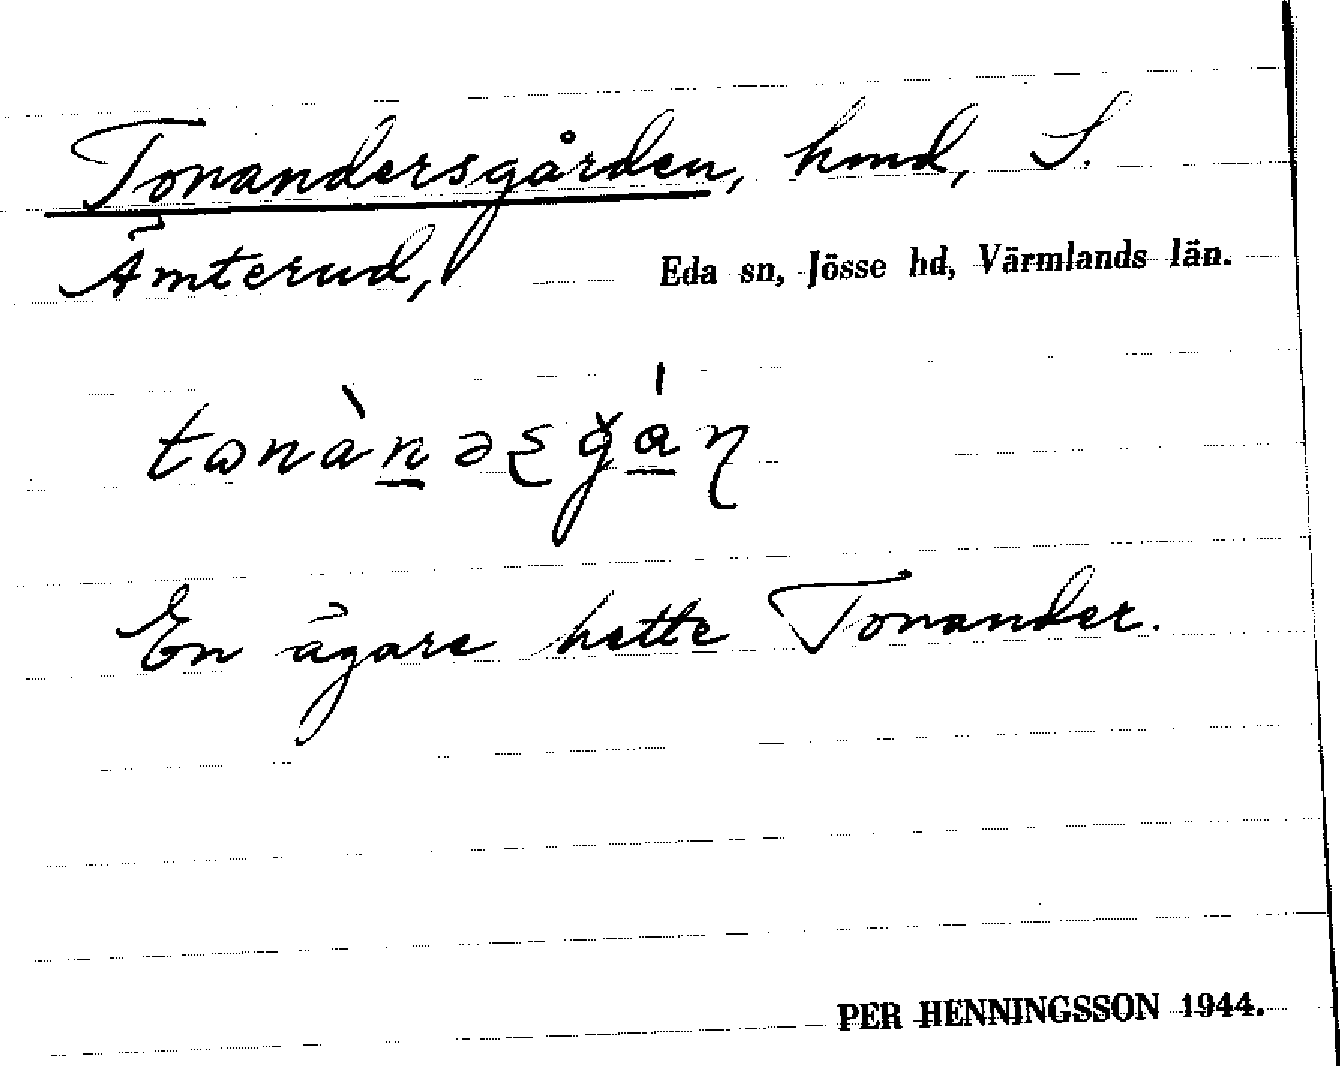 Tonandersgården, hmd, S.
Ämterud,
Eda sn, Jösse hd, Värmlands län.
En ägare hette Tonander.
PER HENNINGSSON 1944.